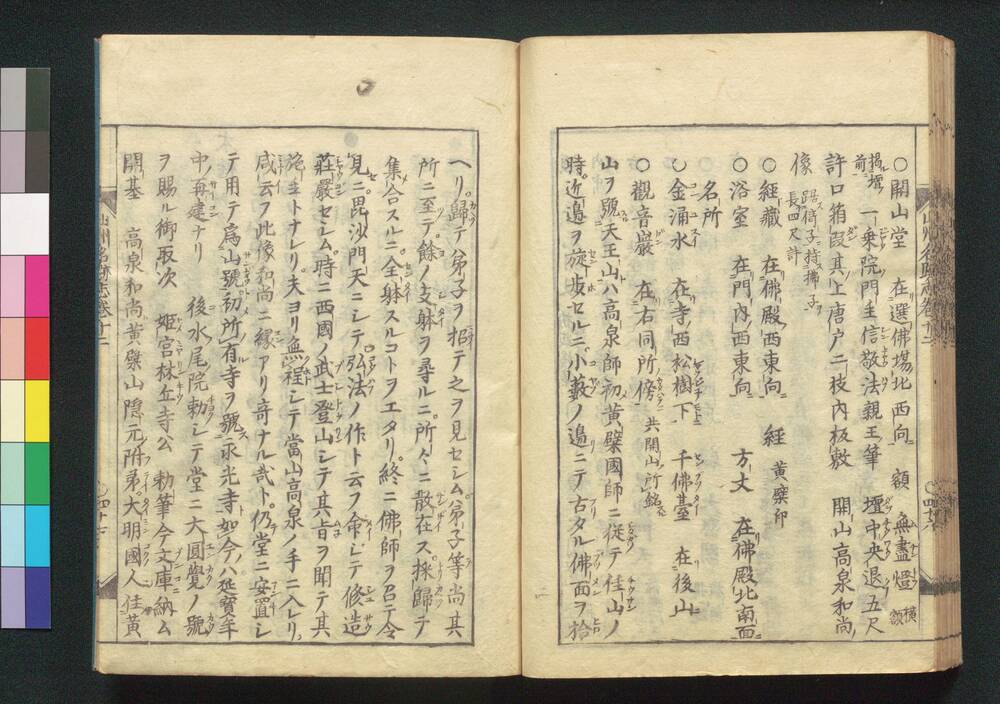 ○開山堂 在選佛場北西向 額 無盡燈 横額
掲壇前 一乗院門主信敬法親王筆 壇中央退五尺
許口箱段其上唐戸二枝内板敷 開山高泉和尚
像 踞倚子持拂子 長四尺計
○経藏 在佛殿西東向 経 黄檗印
○浴室 在門内西東向 方丈 在佛殿北南面
名所
○金涌水 在寺西松樹下 千佛臺 在後山
○觀音巖 在右同所傍 共開山所銘
山ヲ號天王山ハ高泉師初黄檗國師ニ従テ住山ノ
時近邉ヲ旋歩セルニ小藪ノ邉ニテ古タル佛面ヲ拾
山州名跡志巻十二
○四十六
ヘリ歸テ弟子ヲ招テ之ヲ見セシム弟子等尚其
所ニ至テ餘ノ支躰ヲ尋ルニ所々ニ散在ス採歸テ
集合スルニ全躰スルコトヲエタリ終ニ佛師ヲ召テ令
見ニ毘沙門天ニシテ弘法ノ作ト云フ命シテ修造
莊嚴セシム時ニ西國ノ武士登山シテ其旨ヲ聞テ其
施主トナレリ夫ヨリ無程シテ當山高泉ノ手ニ入レリ
咸云フ此像和尚ニ縁アリ奇ナル哉ト仍堂ニ安置シ
テ用テ爲山號初所有寺ヲ號永光寺如今ハ延寳年
中再建ナリ 後水尾院勅シテ堂ニ大圓覺ノ號
ヲ賜ル御取次 姫宮林丘寺公 勅筆今文庫納ム
開基 高泉和尚黄檗山隠元附弟大明國人住黄
山州名跡志巻十二
○四十七